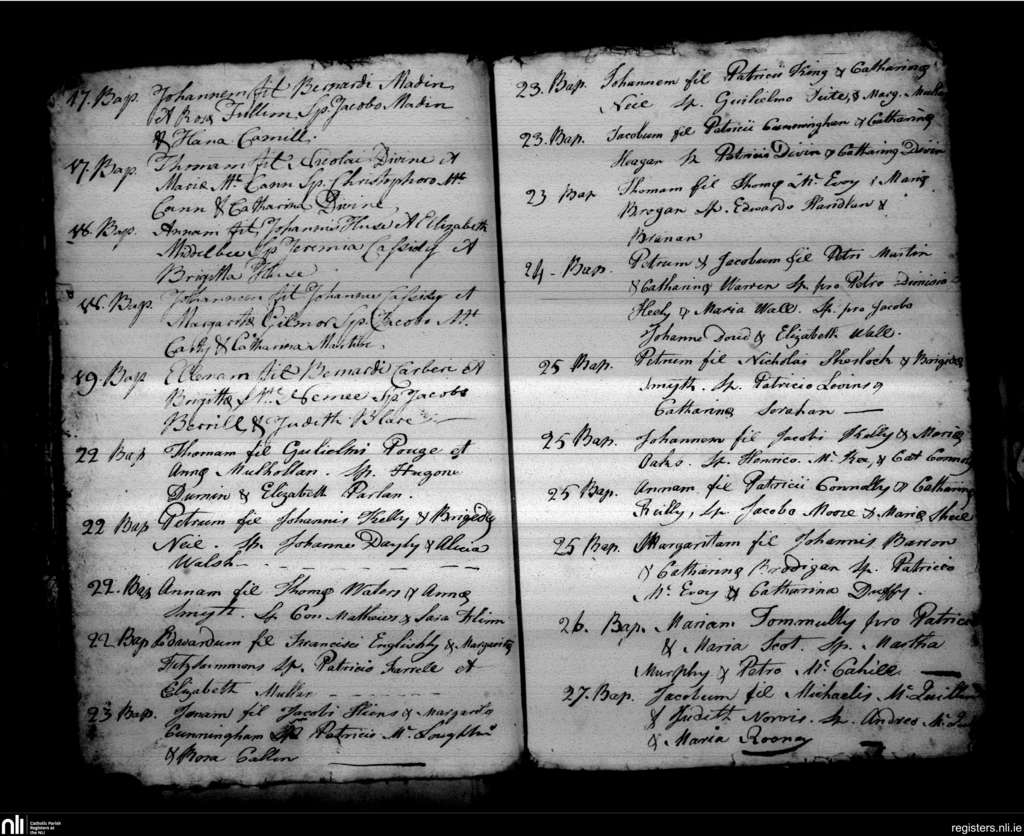 17. Bap. Johannem fil Bernardi Madin
et Rosæ Fullim Sp. Jacobo Madin
& Hana Carroll.
17. Bap. Thomam fil. Nicolai Divine et
Mariæ Mc. Cann Sp. Christophoro Mc.
Cann & Catharina Divine
18. Bap. Annam fil. Johannis Huse et Elizabeth
Sp Jeremia Cassidy et
Brigitta
18. Bap. Johannem fil Johannis Cassidy et
Margaritæ Gilmor Sp. Jacobo Mc.
& Catharina
19. Bap Ellenam fil Bernardi Carberi et
Brigittæ Sp Jacobo
Berrill & Judith Blare
22 Bap Thomam fil Gulielmi Ponge et
Annæ Mulhollan. Sp. Hugone
Dumin & Elizabeth Parlan.
22 Bap Petrum fil Johannis Kelly & Brigedæ
Neil. Sp Johanne Dayly & Alicia
Walsh
22. Bap Annam fil Thomæ Waters & Annæ
Smyth. Sp Con Mathews & Sara Flinn
22 Bap Edavardum fil Francisci Englishby & Margaritæ
Fitzsimmons Sp. Patricio Farrell et
Elizabeth Mullen
23 Bap. Jonam fil Jacobi Hiens & Margarita
Cunningham Sp Patricio Mc. Loughlin
& Rora Callin
23. Bap. Johannem fil Patricii King & Catharinæ
Neil Sp. Guilielmo Tuite, & Marg. Mullen
23. Bap. Jacobum fil Patricii Cunningham & Catharinæ
Heagan Sp Patricio Divin & Catharina Divin
23 Bap Thomam fil Thomæ Mc. Evoy & Mariæ
Brogan Sp. Edwardo Handlan &
Brenan
24 - Bap. Petrum & Jacobum fil Petri Martin
& Catharinæ Warren Sp. pro Petro Dinisio
Heely & Maria Wall. Sp. pro Jacobo
Johanne Dowd & Elizabeth Wall.
25 Bap. Petrum fil Nicholai Sherloch & Brigidæ
Smyth. Sp. Patricio Levins &
Catharina Sorahan
25 Bap. Johannem fil Jacobi Kelly & Mariæ
Oaks. Sp. Henrico. Mc. Kee, & Cat Connolly
25 Bap. Annam fil Patricii Connolly & Catharinæ
Reilly, Sp. Jacobo Moore & Maria Sheil
25 Bap. Margaritam fil Johannis Barron
& Catharinæ Brodigan Sp. Patricio
Mc. Evoy & Catharina Duffy.
26. Bap. Mariam Tommulty pro Patricio
& Maria Scot. Sp. Martha
Murphy & Petro Mc. Cahill
27. Bap. Jacobum fil Michaelis Mc. Quillan
& Judith Norris. Sp. Andreo Mc.
& Maria Rooney
nli
Catholic Parish
Registers at
the NLI
registers.nli.ie